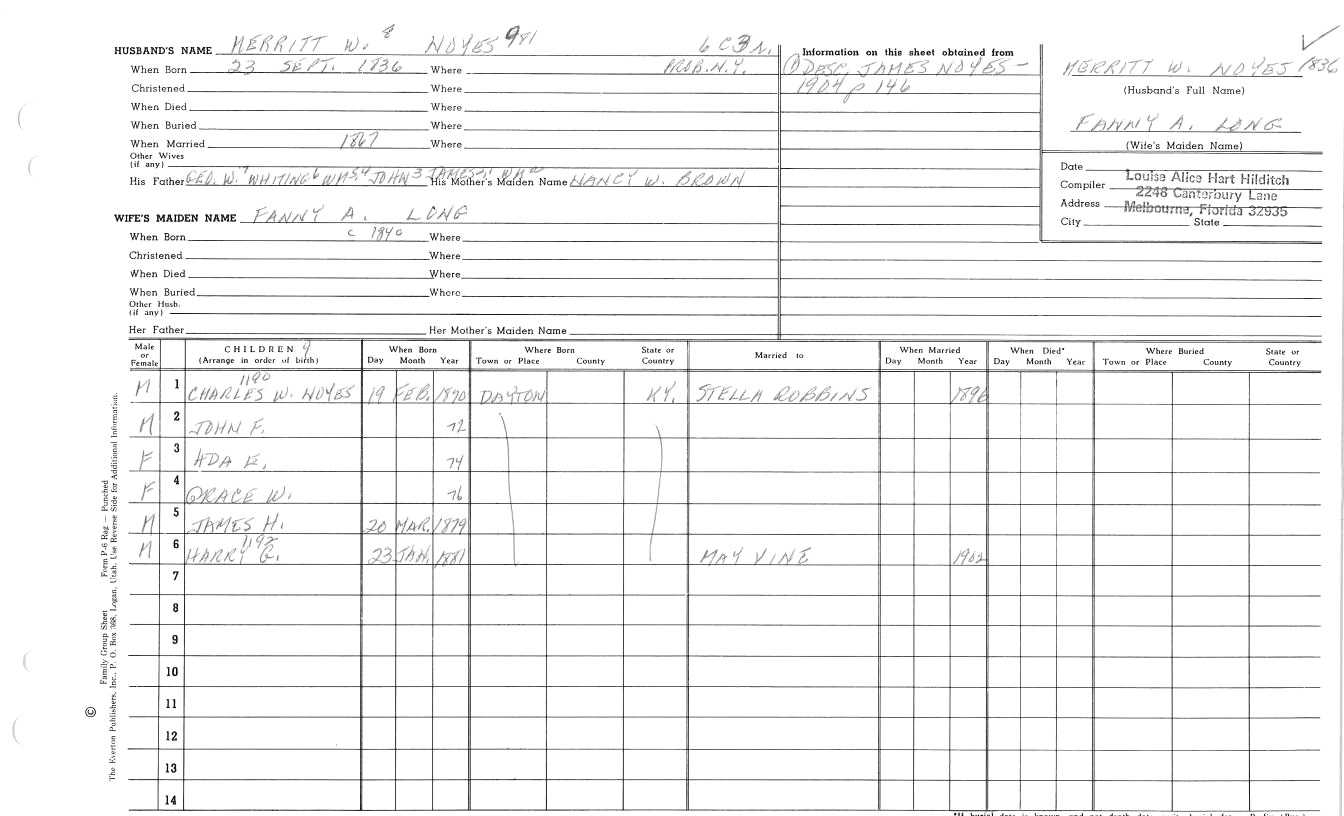 HUSBAND'S NAME MERRITT W. 8 NOYES 981 6 C 3 N.
When Born 23 SEPT. 1836 Where PROB. N.Y.
Christened Where
When Died Where
When Buried Where
When Married 1867 Where
Other Wives
(if any)
His Father GEO. W.7 WHITING6 WM5,4 JOHN3 JAMES2, WM His Mother's Maiden Name NANCY W. BROWN
WIFE'S MAIDEN NAME FANNY A. LONG
When Born c 1840 Where
Christened Where
When Died Where
When Buried Where
Other Husb.
(if any)
Her Father Her Mother's Maiden Name
Information on this sheet obtained from
① DESC. JAMES NOYES -
1904 p 146
MERRITT W. NOYES 1836
(Husband's Full Name)
FANNY A. LONG
(Wife's Maiden Name)
Date
Compiler Louise Alice Hart Hilditch
Address 2248 Canterbury Lane
Melbourne, Florida 32935
City State
Male or Female CHILDREN 9 (Arrange in order of birth) When Born Day Month Year Where Born Town or Place County State or Country Married to When Married Day Month Year When Died* Day Month Year Where Buried Town or Place County State or Country
1190
M 1 CHARLES W. NOYES 19 FEB. 1870 DAYTON KY. STELLA ROBBINS 1896
M 2 JOHN F. 72
F 3 ADA E. 74
F 4 GRACE W. 76
M 5 JAMES H. 20 MAR. 1879
1192
M 6 HARRY G. 23 JAN. 1881 MAY VINE 1902
7
8
9
10
11
12
13
14
Family Group Sheet Form P-6 Rag — Punched
© The Everton Publishers, Inc., P. O. Box 368, Logan, Utah. Use Reverse Side for Additional Information.